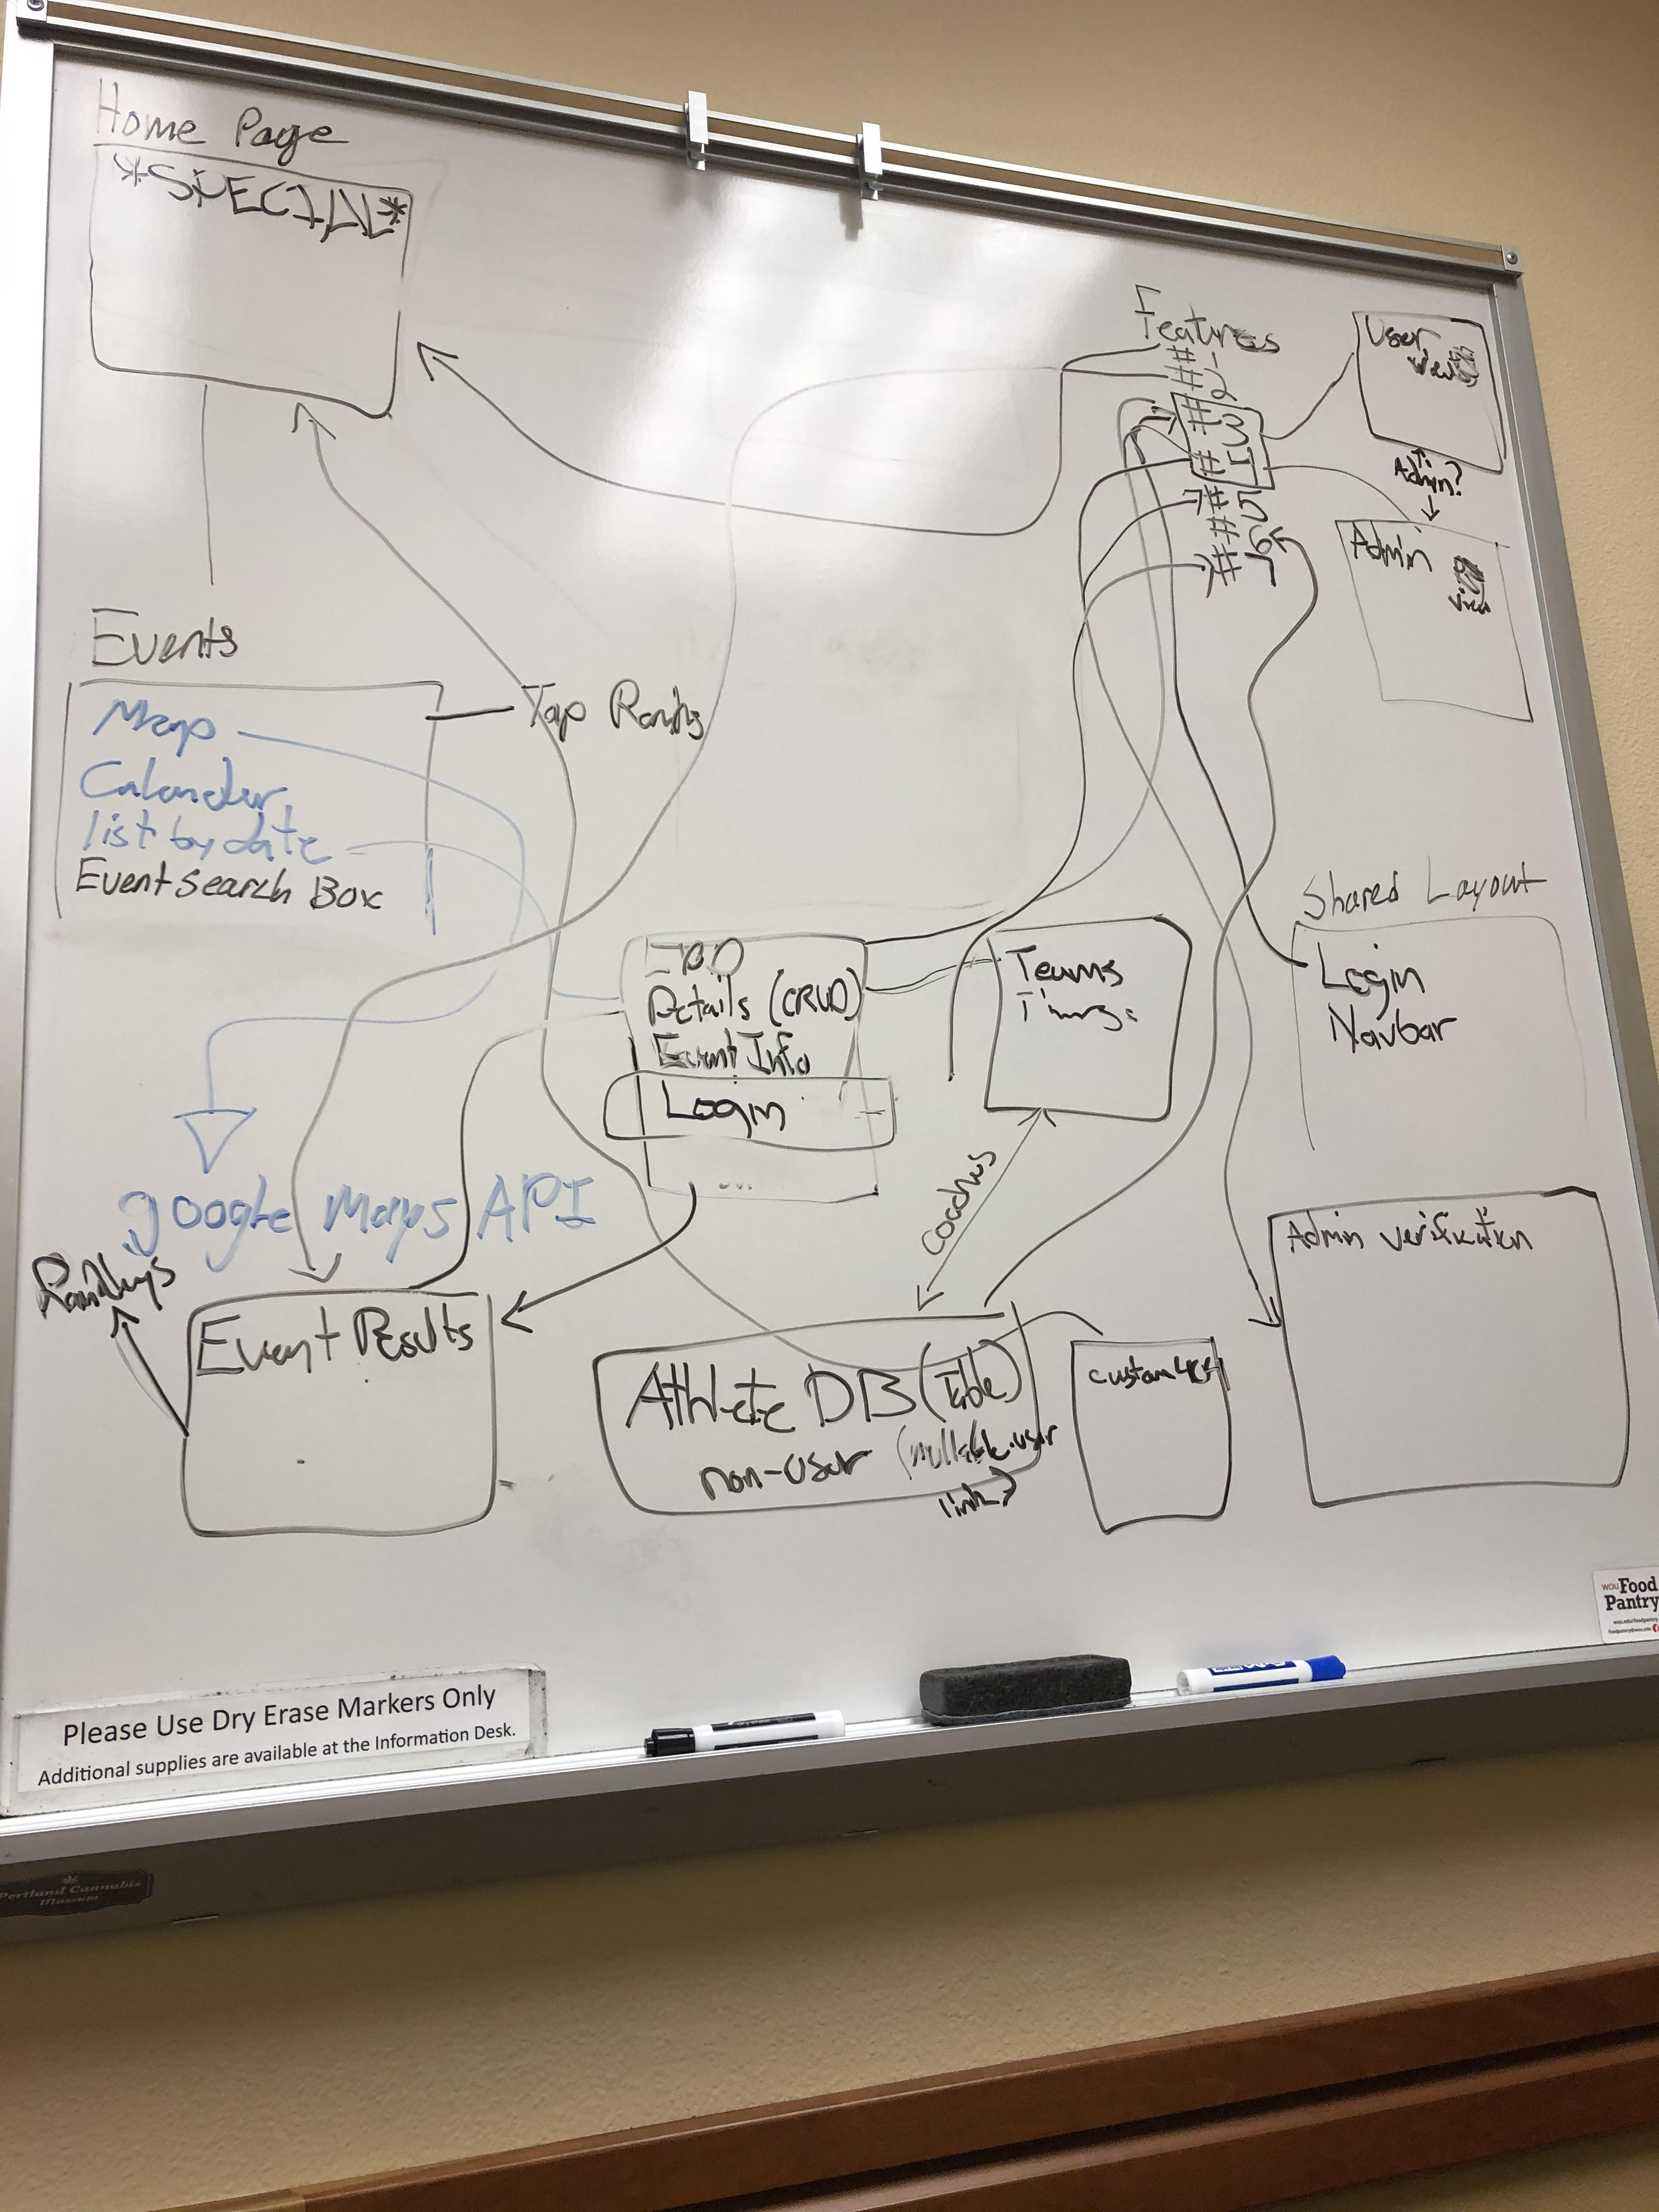 Home Page
*SPECIAL*
Features
#
#2
#3
#I
#5
#
#6
User
view
Admin?
Admin
view
Events
Map
Calendur
list by date
Event Search Box
Top Ranks
Details (CRUD)
Event Info
Login
...
Teams
Shared Layout
Login
Navbar
google Maps API
Coaches
Admin verification
Event Results
Athlete DB (Table)
non-user (nullable user
link)
custom 404
WOU Food
Pantry
Please Use Dry Erase Markers Only
Additional supplies are available at the Information Desk.
Portland Cannabis
Museum